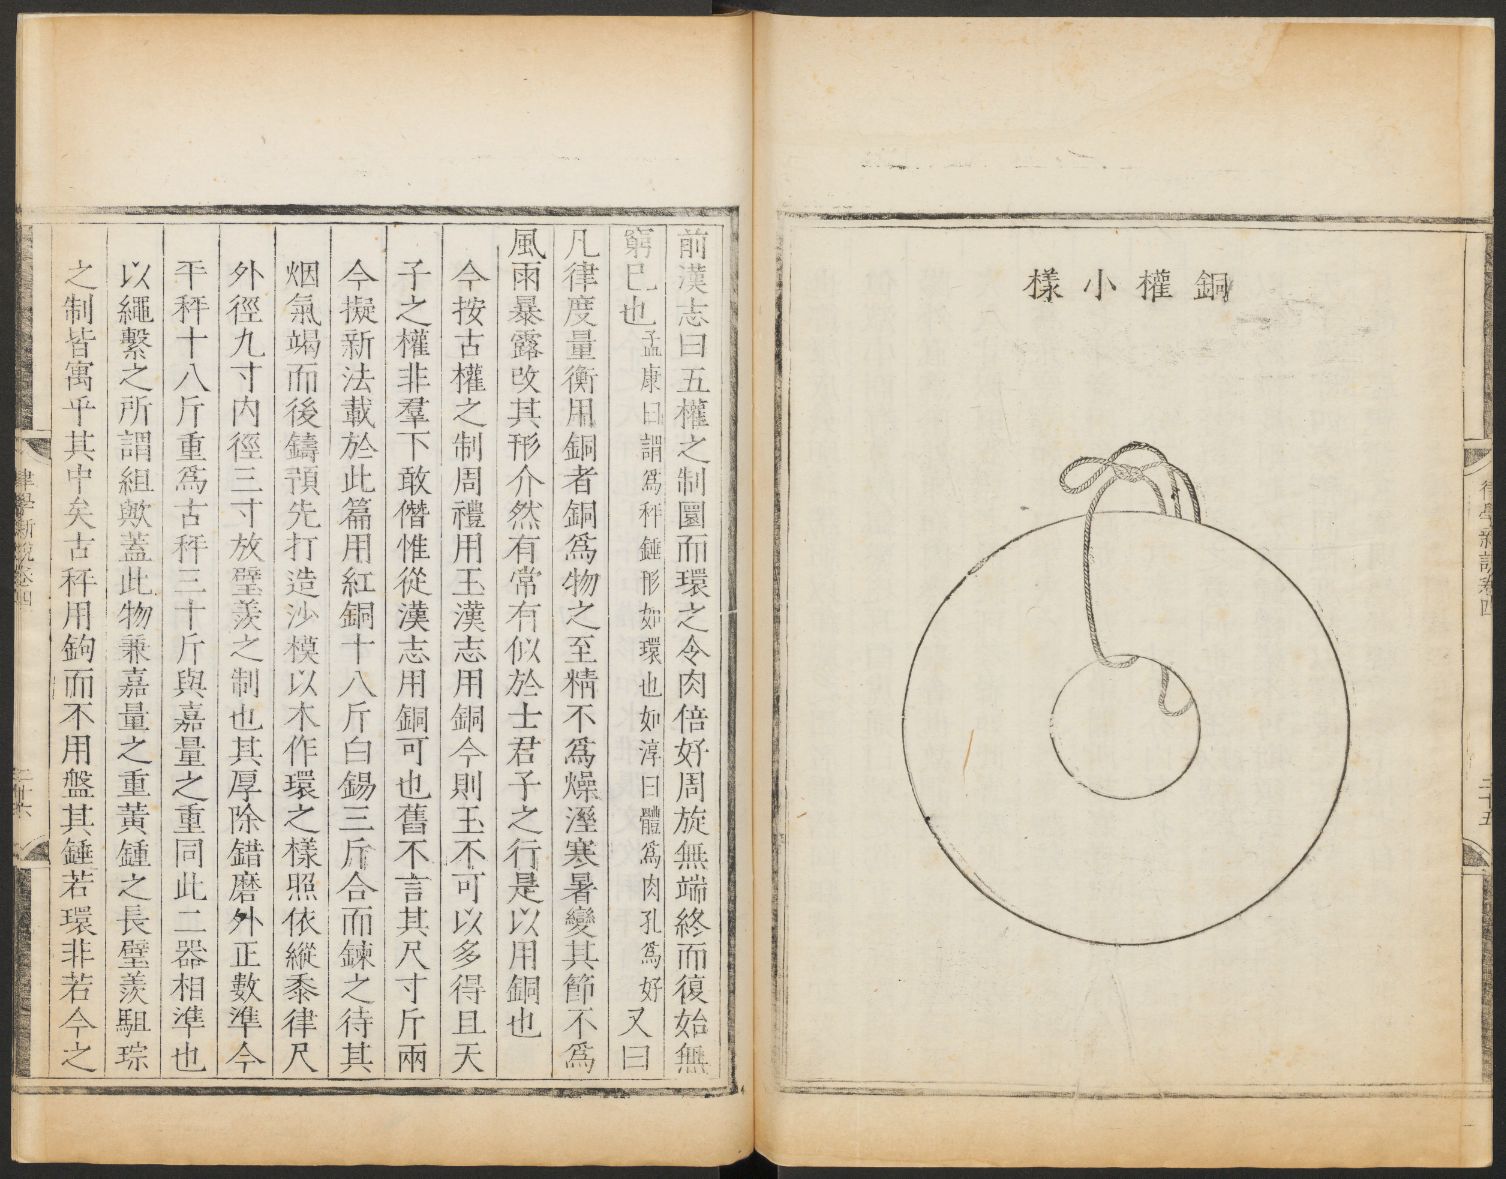 銅權小樣
律學新說卷四
二十五
前漢志曰五權之制圜而環之令肉倍好周旋無端終而復始無
窮已也孟康曰謂爲秤錘形如環也如淳曰體爲肉孔爲好又曰
凡律度量衡用銅者銅爲物之至精不爲燥溼寒暑變其節不爲
風雨暴露改其形介然有常有似於士君子之行是以用銅也
今按古權之制周禮用玉漢志用銅今則玉不可以多得且天
子之權非羣下敢僭惟從漢志用銅可也舊不言其尺寸斤兩
今擬新法載於此篇用紅銅十八斤白錫三斤合而鍊之待其
烟氣竭而後鑄預先打造沙模以木作環之樣照依縱黍律尺
外徑九寸內徑三寸放璧羨之制也其厚除錯磨外正數準今
平秤十八斤重爲古秤三十斤與嘉量之重同此二器相準也
以繩繫之所謂組歟蓋此物兼嘉量之重黃鍾之長璧羨駔琮
之制皆寓乎其中矣古秤用鉤而不用盤其錘若環非若今之
律學新說卷四
二十六